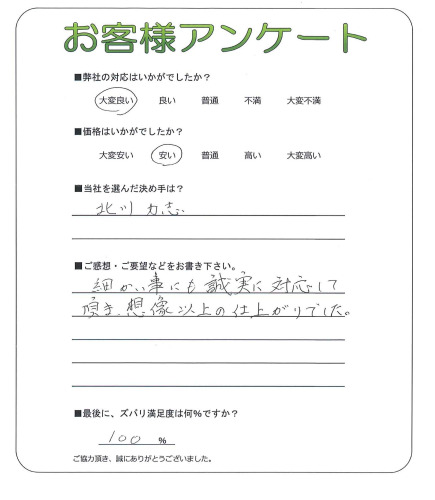 お客様アンケート
■弊社の対応はいかがでしたか?
大変良い 良い 普通 不満 大変不満
■価格はいかがでしたか?
大変安い 安い 普通 高い 大変高い
■当社を選んだ決め手は?
北川 力志
■ご感想・ご要望などをお書き下さい。
細かい事にも誠実に対応して
頂き、想像以上の仕上がりでした。
■最後に、ズバリ満足度は何%ですか?
100 %
ご協力頂き、誠にありがとうございました。